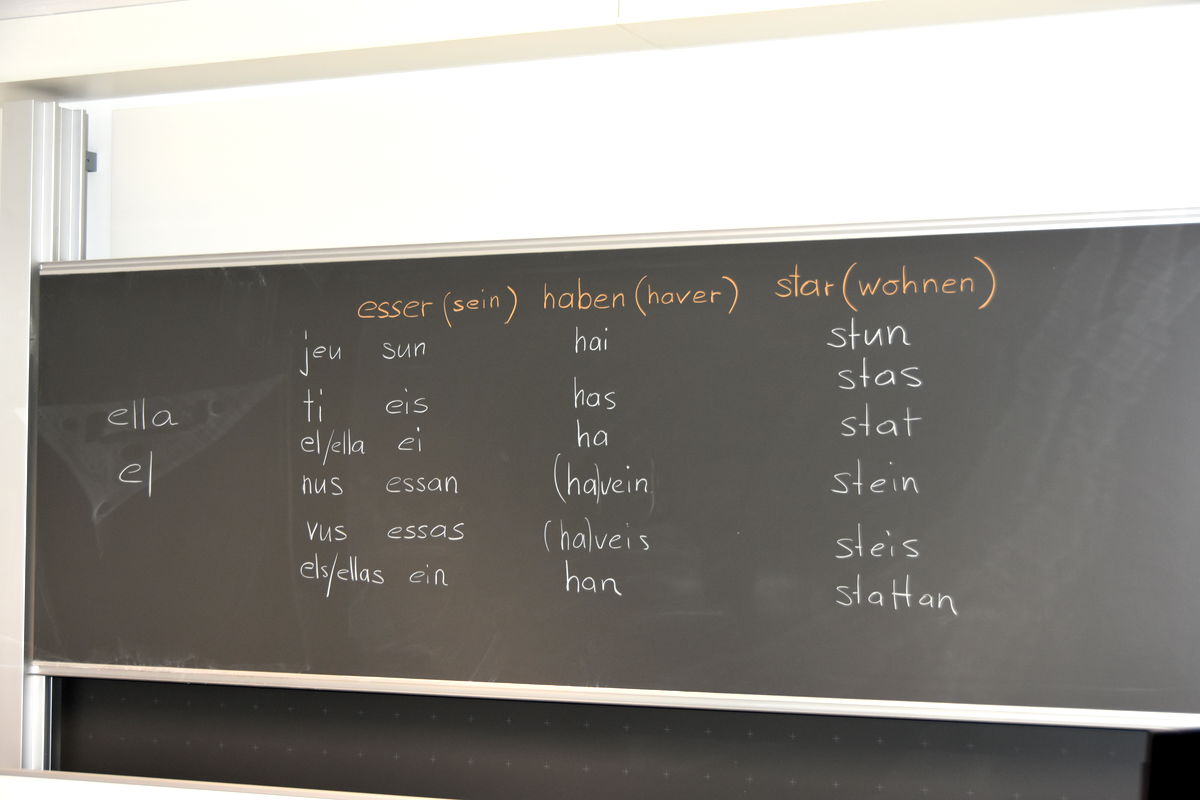 esser (sein) haben (haver) star (wohnen)
jeu sun hai stun
ti eis has stas
el/ella ei ha stat
nus essan (ha)vein stein
vus essas (ha)veis steis
els/ellas ein han stattan
ella
el